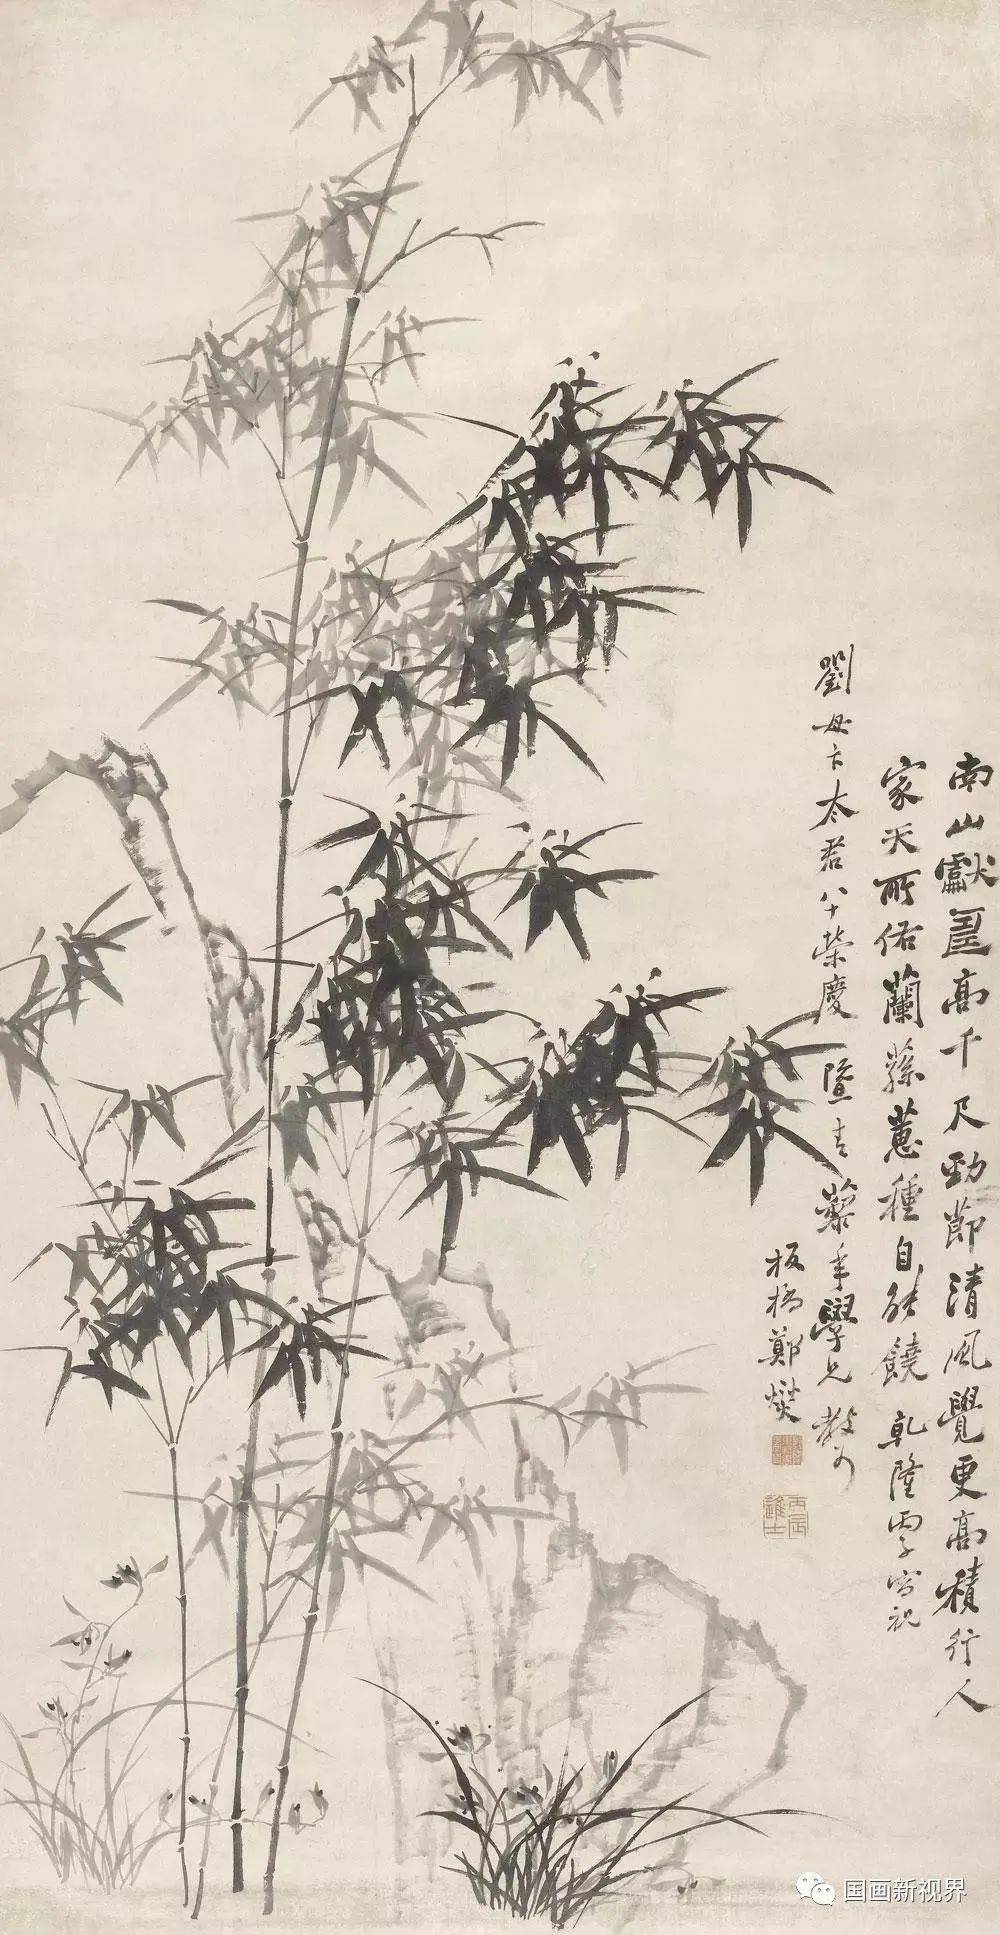 南山獻壽高千尺勁節清風覺更高積行人
家天所佑蘭蓀蕙種自能饒 乾隆丙子寫祝
劉母卞太君八十榮慶 暨青藜年學兄教可
板橋鄭燮
丙辰進士
国画新视界